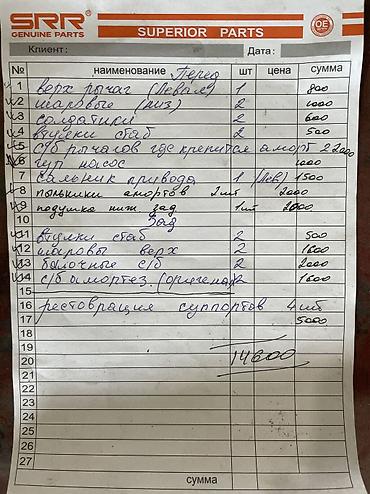 SRR
GENUINE PARTS
SUPERIOR PARTS
OE
Клиент: Дата:
№ наименование Перед шт цена сумма
1 верх рычаг (Левая) 1 800
2 шаровые (низ) 2 1000
3 солдатики 2 600
4 втулки стаб 2 500
5 с/б рычагов где крепится аморт 2 2000
6 гур насос 1000
7 сальник привода 1 (Лев) 1500
8 пыльники амортов 2шт 2000
9 подушка ниж. зад 1шт 2000
10 Зад
11 втулки стаб 2 500
12 шаровы верх 2 1800
13 балочные с/б 2 2000
14 с/б амортез. (оригенал) 2 1600
15
16 рестоврация суппортов 4шт
17 5000
18
19
20 14600
21
22
23
24
25
26
27
сумма